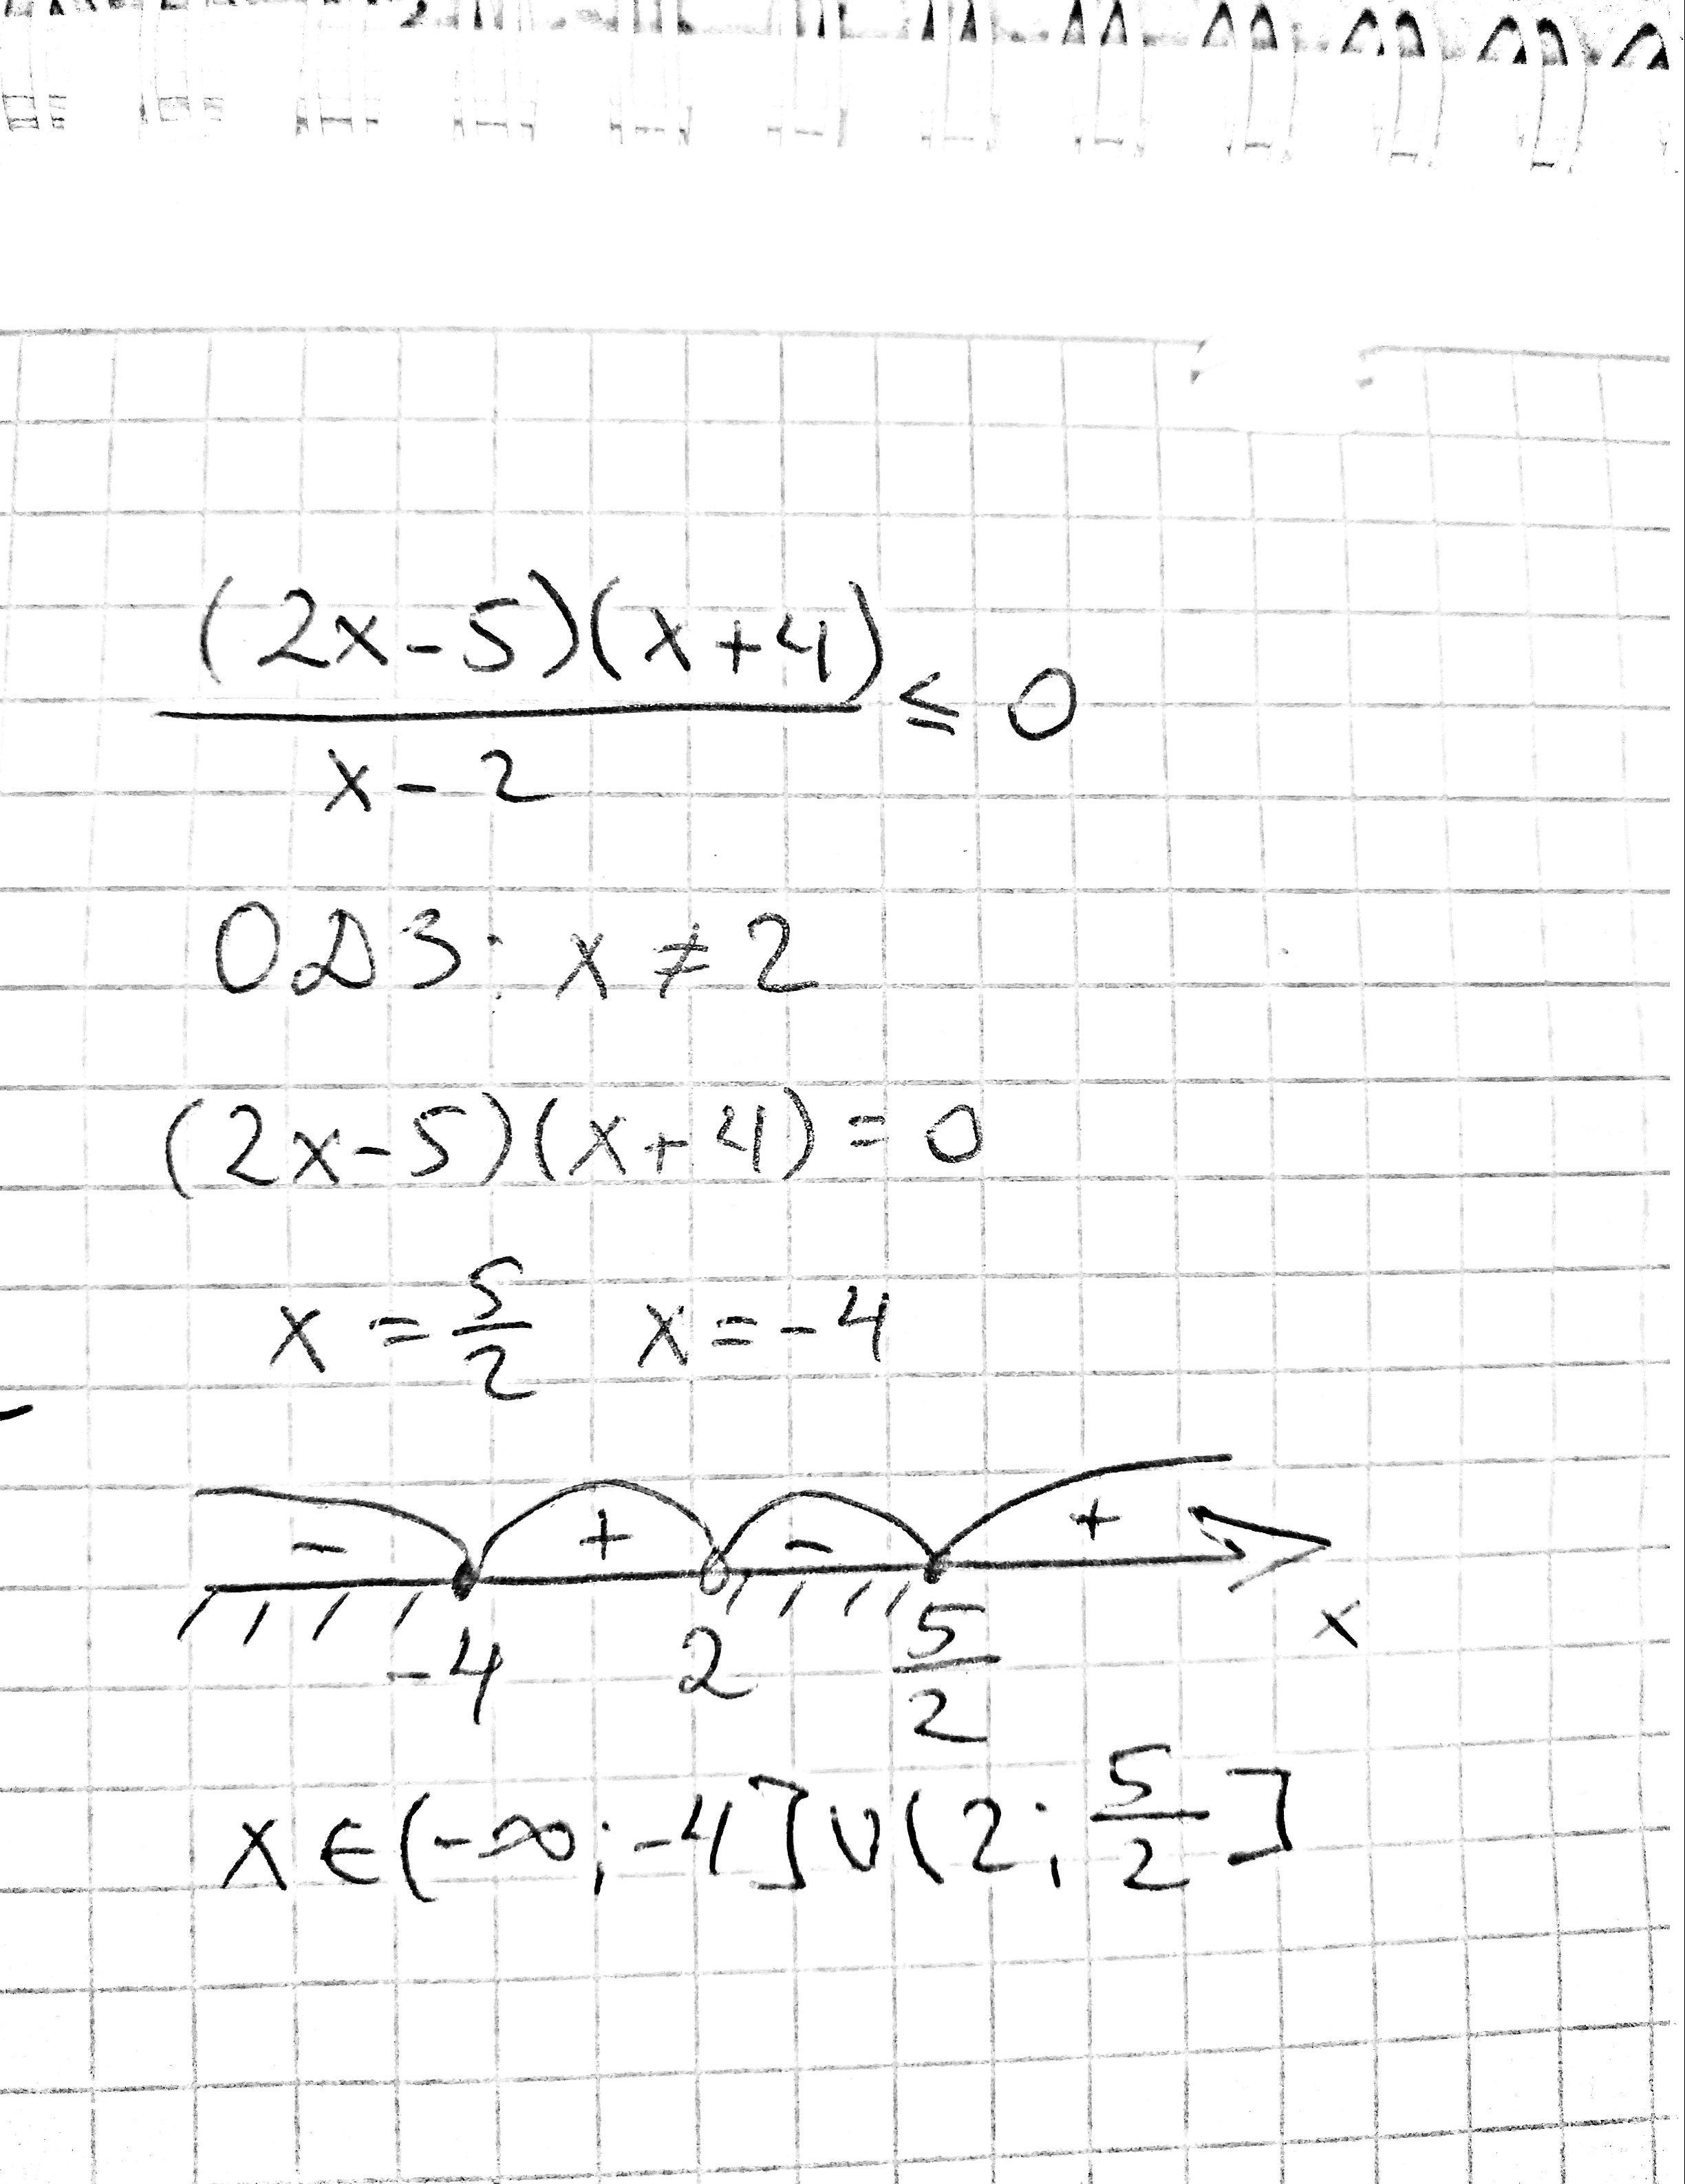 (2x-5)(x+4)
x-2
≤ 0
ОДЗ: x ≠ 2
(2x-5)(x+4)=0
x = 5/2 x = -4
- + - +
-4 2 5/2 x
x ∈ (-∞; -4] ∪ (2; 5/2]